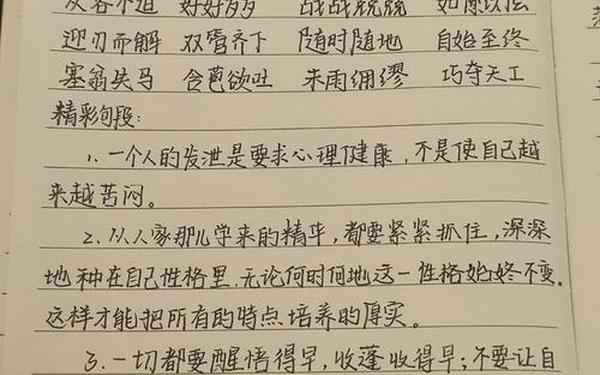 从容不迫 好好多多 战战兢兢 如愿以偿
迎刃而解 双管齐下 随时随地 自始至终
塞翁失马 含苞欲吐 未雨绸缪 巧夺天工
精彩句段：
1、一个人的发泄是要求心理健康，不是使自己越
来越苦闷。
2、从人家那儿学来的精华，都要紧紧抓住，深深
地种在自己性格里，无论何时何地这一性格始终不变。
这样才能把所有的特点培养的厚实。
3、一切都要醒悟得早，收蓬收得早；不要让自